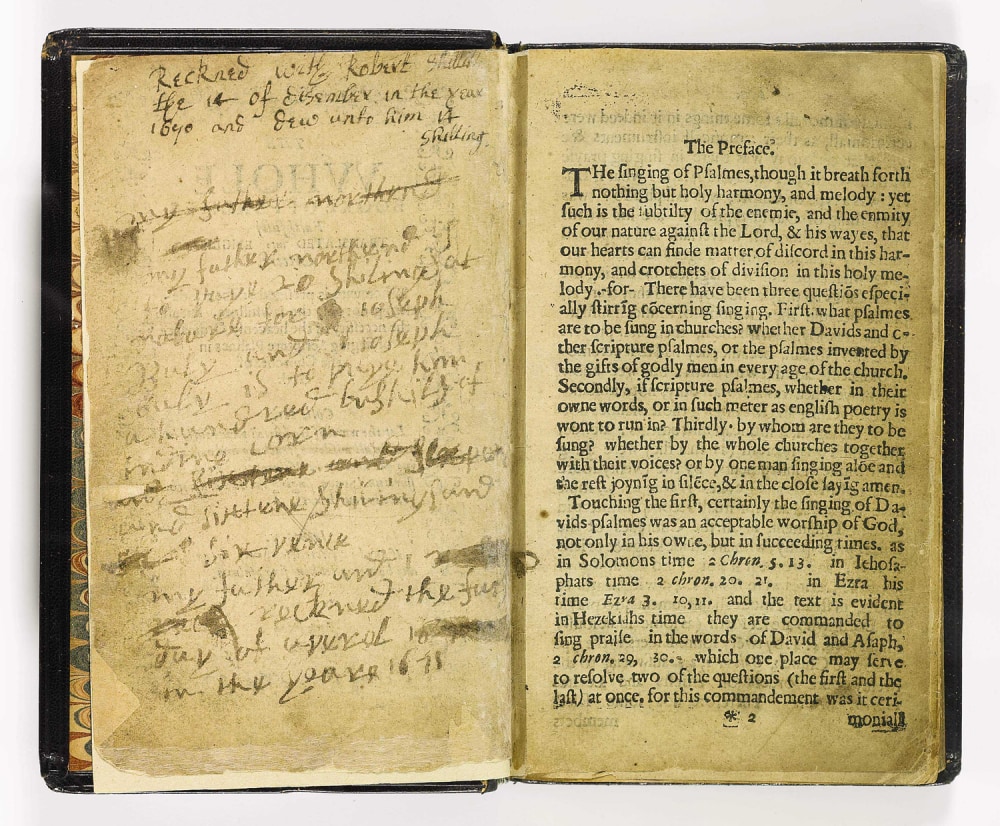 Reckned with Robert Shilling
the 14 of disember in the year
1690 and dew unto him 14
Shilling
my father northend
my father northend
20 Shilings
for Joseph
and Joseph
is to paye him
a hundred bushils of
indine corn
and sixtene Shilings and
six penc
my father and I
reckned the
day of
in the yeare
The Preface.
THe ſinging of Pſalmes,though it breath forth
nothing but holy harmony, and melody : yet
ſuch is the ſubtilty of the enemie, and the enmity
of our nature againſt the Lord, & his wayes, that
our hearts can finde matter of diſcord in this har-
mony, and crotchets of diviſion in this holy me-
lody.-for- There have been three queſtiõs eſpeci-
ally ſtirrĩg cõcerning ſinging. Firſt. what pſalmes
are to be ſung in churches? whether Davids and o-
ther ſcripture pſalmes, or the pſalmes invented by
the gifts of godly men in every age of the church.
Secondly, if ſcripture pſalmes, whether in their
owne words, or in ſuch meter as engliſh poetry is
wont to run in? Thirdly. by whom are they to be
ſung? whether by the whole churches together
with their voices? or by one man ſinging alõe and
the reſt joynĩg in ſilẽce,& in the cloſe ſayĩg amen.
Touching the firſt, certainly the ſinging of Da-
vids pſalmes was an acceptable worſhip of God,
not only in his owne, but in ſucceeding times. as
in Solomons time 2 Chron. 5. 13. in Iehoſa-
phats time 2 chron. 20. 21. in Ezra his
time Ezra 3. 10,11. and the text is evident
in Hezekiahs time they are commanded to
ſing praiſe in the words of David and Aſaph,
2 chron. 29, 30. which one place may ſerve
to reſolve two of the queſtions (the firſt and the
laſt) at once. for this commandement was it ceri-
* 2 moniall